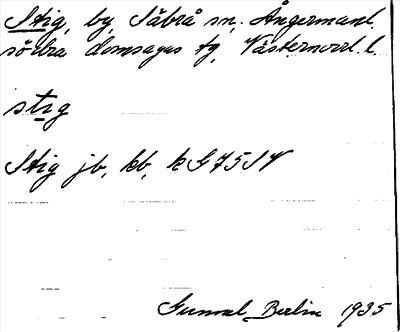 Stig, by, Säbrå sn, Ångermanl.
södra domsagas tg, Västernorrl. l.
stig
Stig jb, kb, kG75SV
Gunnel Berlin 1935